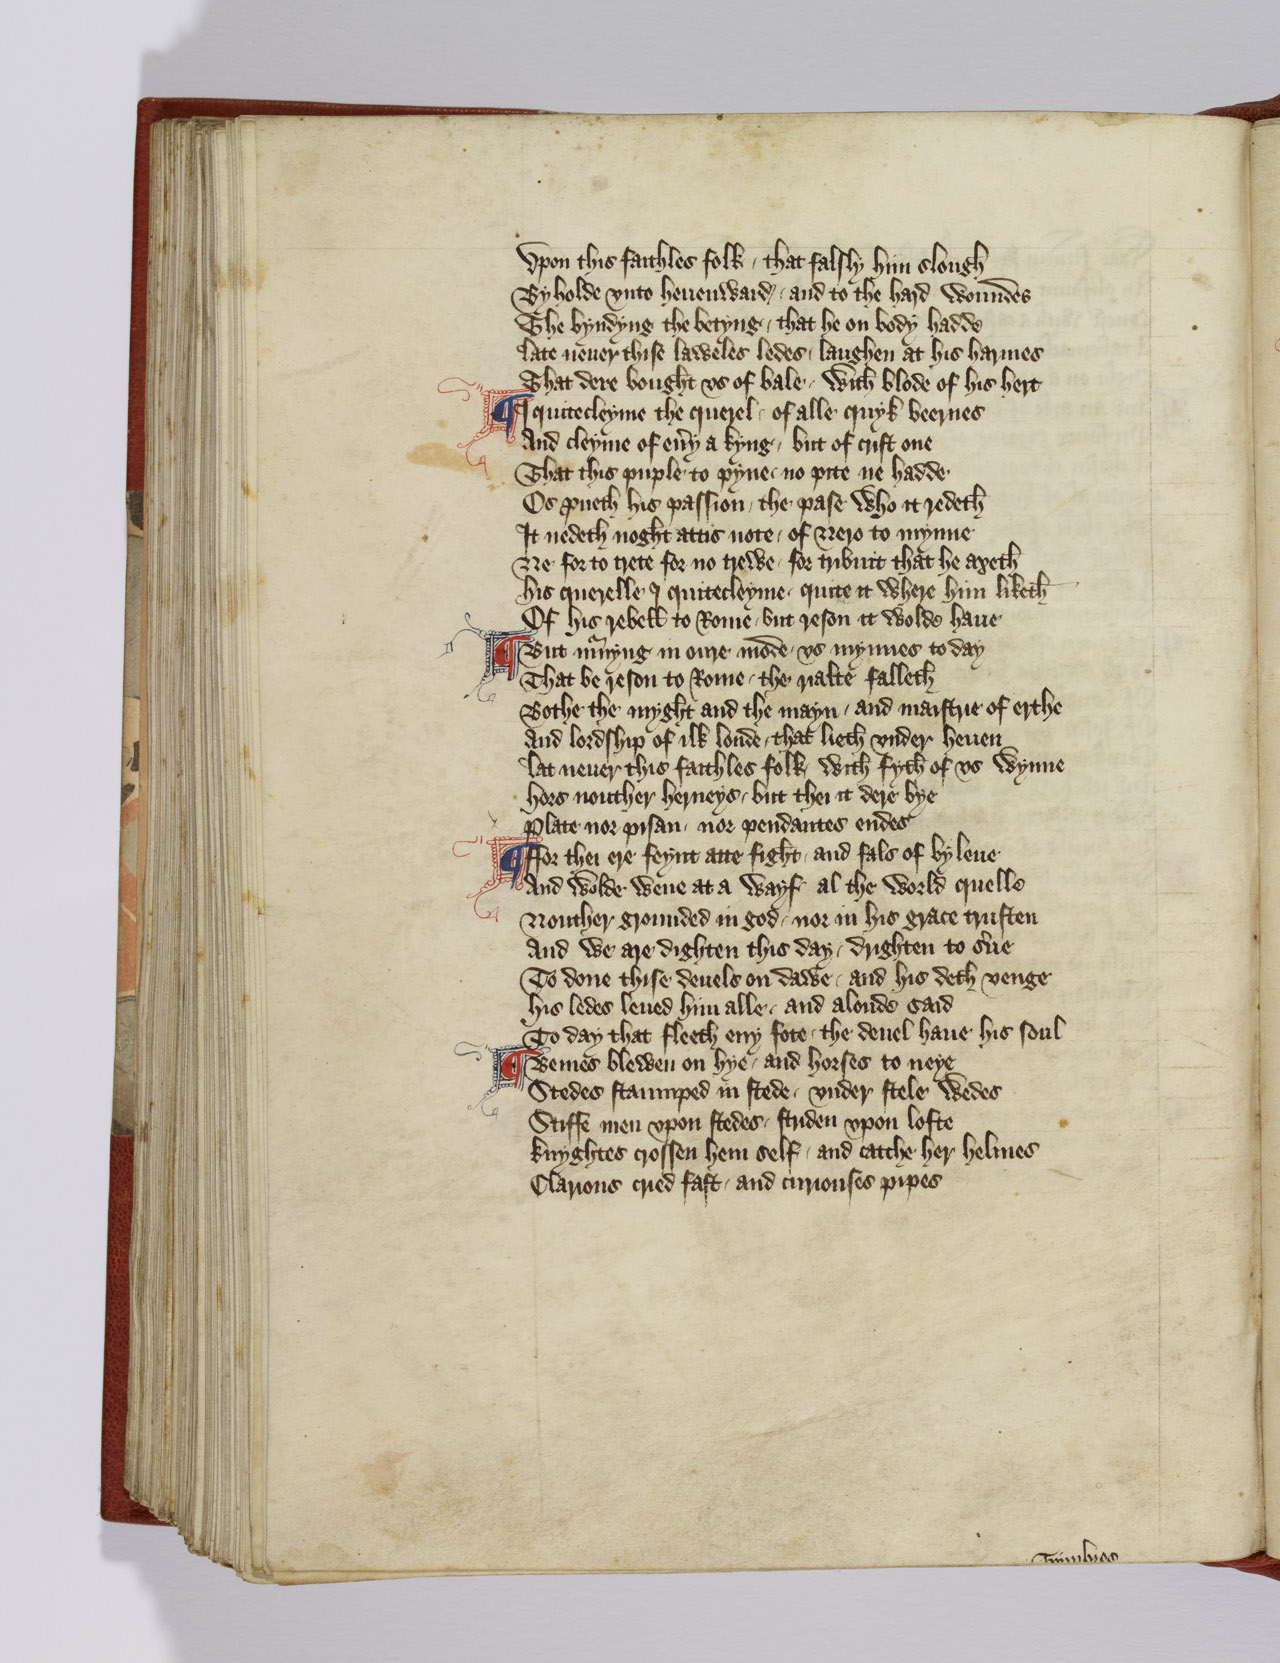 Vpon this faithles folk / that falsly him slough
Byholde vnto heuenward / and to the hard woundes
The byndyng the betyng / that he on body hadde
Late neuer thise laweles ledes / laughen at his harmes
That dere bought vs of bale / with blode of his hert
¶ I quitecleyme the querel / of alle quyk beernes
And cleyme of eu'y a kyng / but of crist one
That this puple to pyne / no pite ne hadde
Os ꝓueth his passion / the pase who it redeth
It nedeth noght attis note / of Nero to mynne
Ne for to trete for no trewe / for tribuit that he axeth
His querelle I quitecleyme / quite it where him liketh
Of his rebell to Rome / but reson it wolde haue
¶ But mͬnyng in oure mode / vs mynnes to day
That be reson to Rome / the rialte falleth
Bothe the myght and the mayn / and maistrie of erthe
And lordship of ilk londe / that lieth vnder heuen
Lat neuer this faithles folk / with fyth of vs wynne
Hors nouther herneys / but thei it dere bye
Plate nor pisan / nor pendantes endes
¶ Ffor thei ere feynt atte fight / and fals of byleue
And wolde wene at a wayf / al the world quelle
Nouther grounded in god / nor in his grace trusten
And we are dighten this day / drighten to s'ue
To done thise deuels on dawe / and his deth venge
His ledes leued him alle / and aloude said
To day that fleeth eny fote / the deuel haue his soul
¶ Bemes blewen on hye / and horses to neye
Stedes stamped in stede / vnder stele wedes
Stiffe men vpon stedes / striden vpon lofte
Knyghtes crossen hem self / and catche her helmes
Clarions cried fast / and curiouses pipes